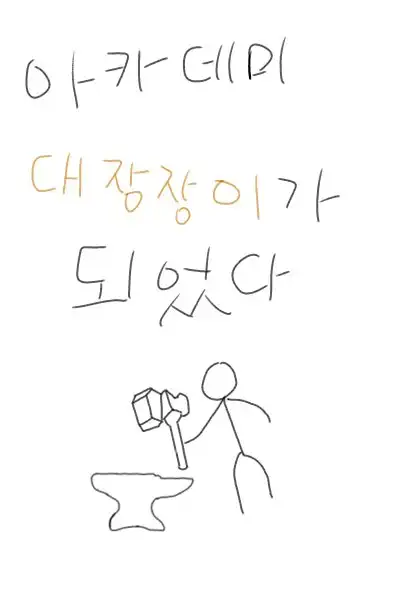 아카데미
대장장이가
되었다